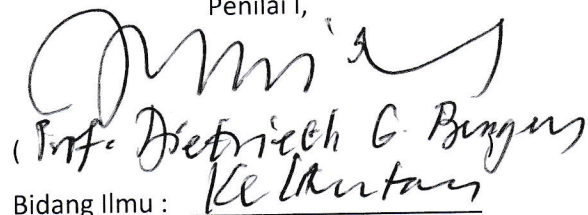 Penilai I,
(Prof. Dietriech G. Bengen
Bidang Ilmu : Kelautan